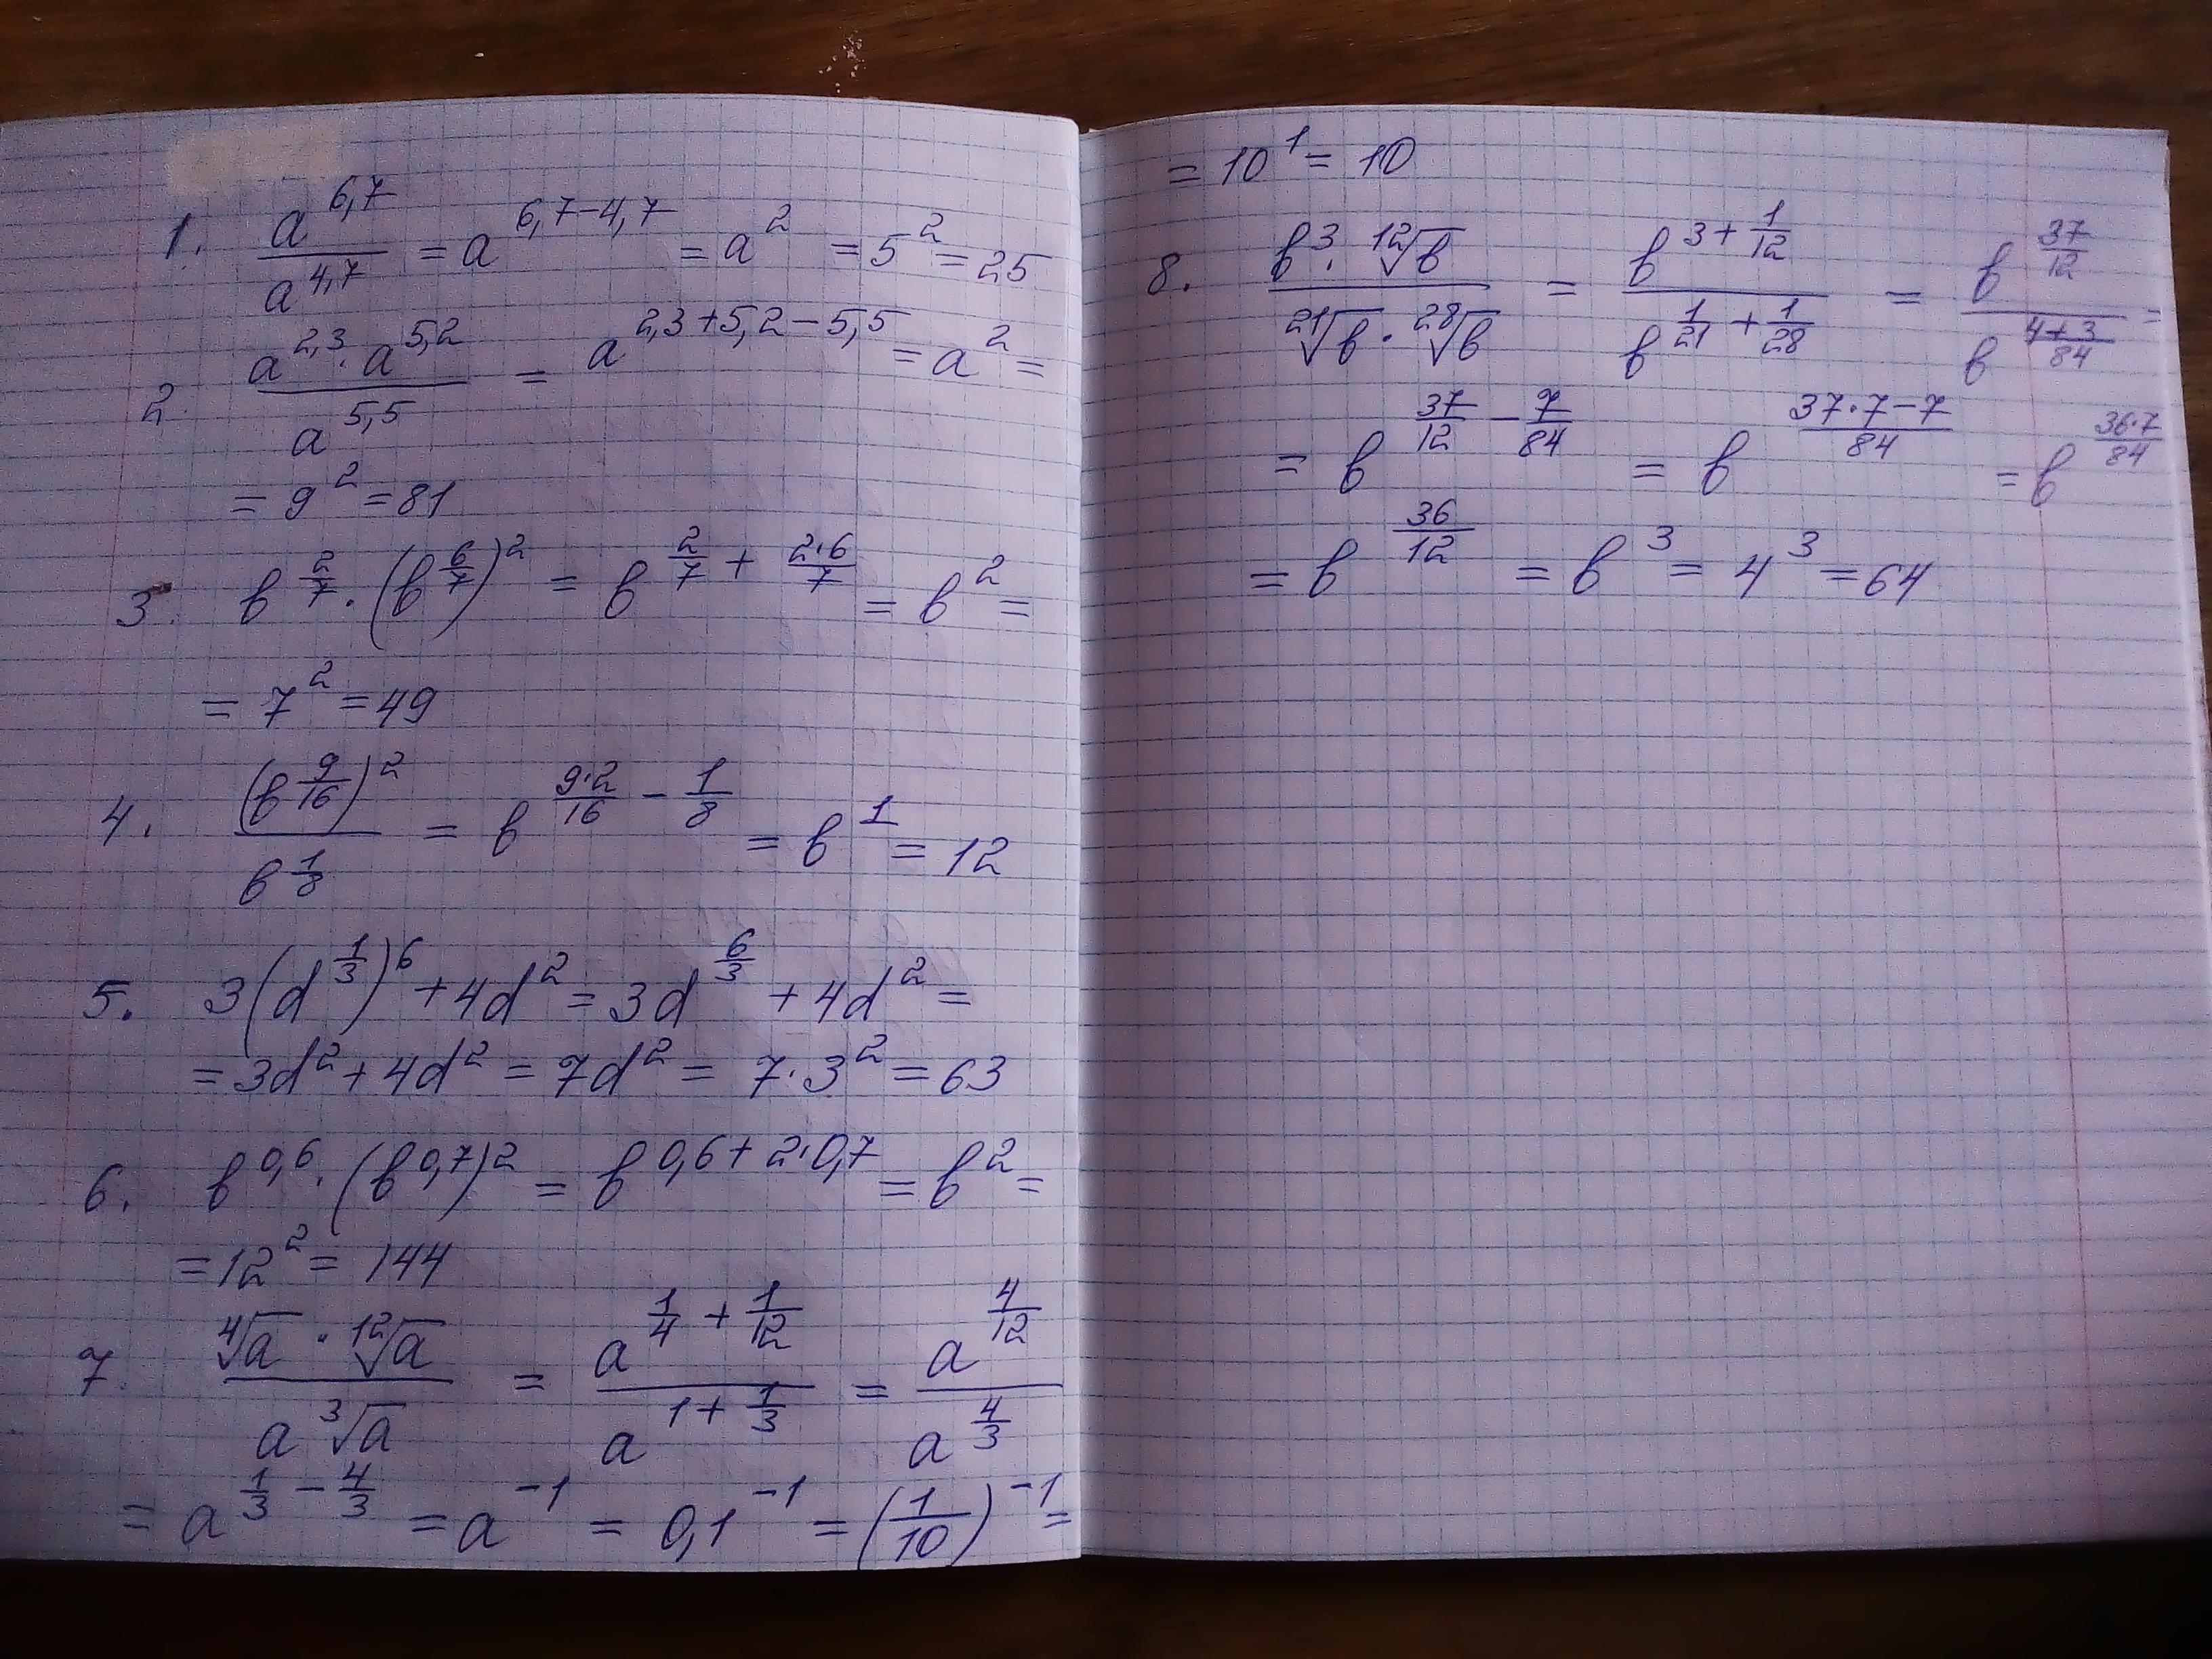 1. a^{6,7}/a^{4,7} = a^{6,7-4,7} = a^2 = 5^2 = 25
2. (a^{2,3} · a^{5,2})/a^{5,5} = a^{2,3+5,2-5,5} = a^2 =
= 9^2 = 81
3. b^{2/7} · (b^{6/7})^2 = b^{2/7 + 2·6/7} = b^2 =
= 7^2 = 49
4. (b^{9/16})^2/b^{1/8} = b^{9·2/16 - 1/8} = b^1 = 12
5. 3(d^{1/3})^6 + 4d^2 = 3d^{6/3} + 4d^2 =
= 3d^2 + 4d^2 = 7d^2 = 7·3^2 = 63
6. b^{0,6} · (b^{0,7})^2 = b^{0,6+2·0,7} = b^2 =
= 12^2 = 144
7. (⁴√a · ¹²√a)/(a ³√a) = a^{1/4 + 1/12}/a^{1 + 1/3} = a^{4/12}/a^{4/3}
= a^{1/3 - 4/3} = a^{-1} = 0,1^{-1} = (1/10)^{-1} =
= 10^1 = 10
8. (b^3 · ¹²√b)/(²¹√b · ²⁸√b) = b^{3 + 1/12}/b^{1/21 + 1/28} = b^{37/12}/b^{(4+3)/84} =
= b^{37/12 - 7/84} = b^{(37·7-7)/84} = b^{36·7/84}
= b^{36/12} = b^3 = 4^3 = 64